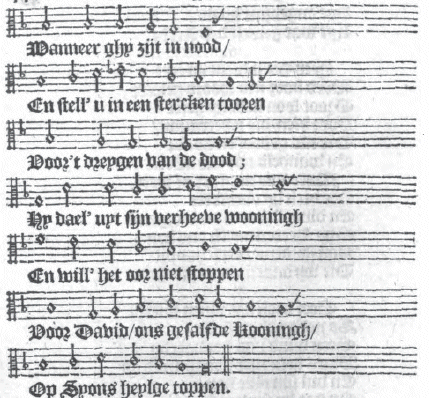 Wanneer ghy zijt in nood/
En stell' u in een stercken tooren
Voor't dreygen van de dood;
Hy dael' uyt sijn verheeve wooningh
En will' het oor niet stoppen
Voor David/ons gesalfde Kooningh/
Op Syons heylge toppen.